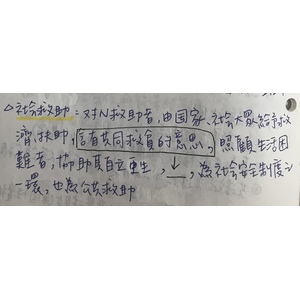 △社会救助：对N救助者,由国家、社会大眾給予救
濟扶助,含有共同救負的意思,照顧生活困
難者,協助其自立更生,↓,為社会安全制度之
一環,也教公共救助